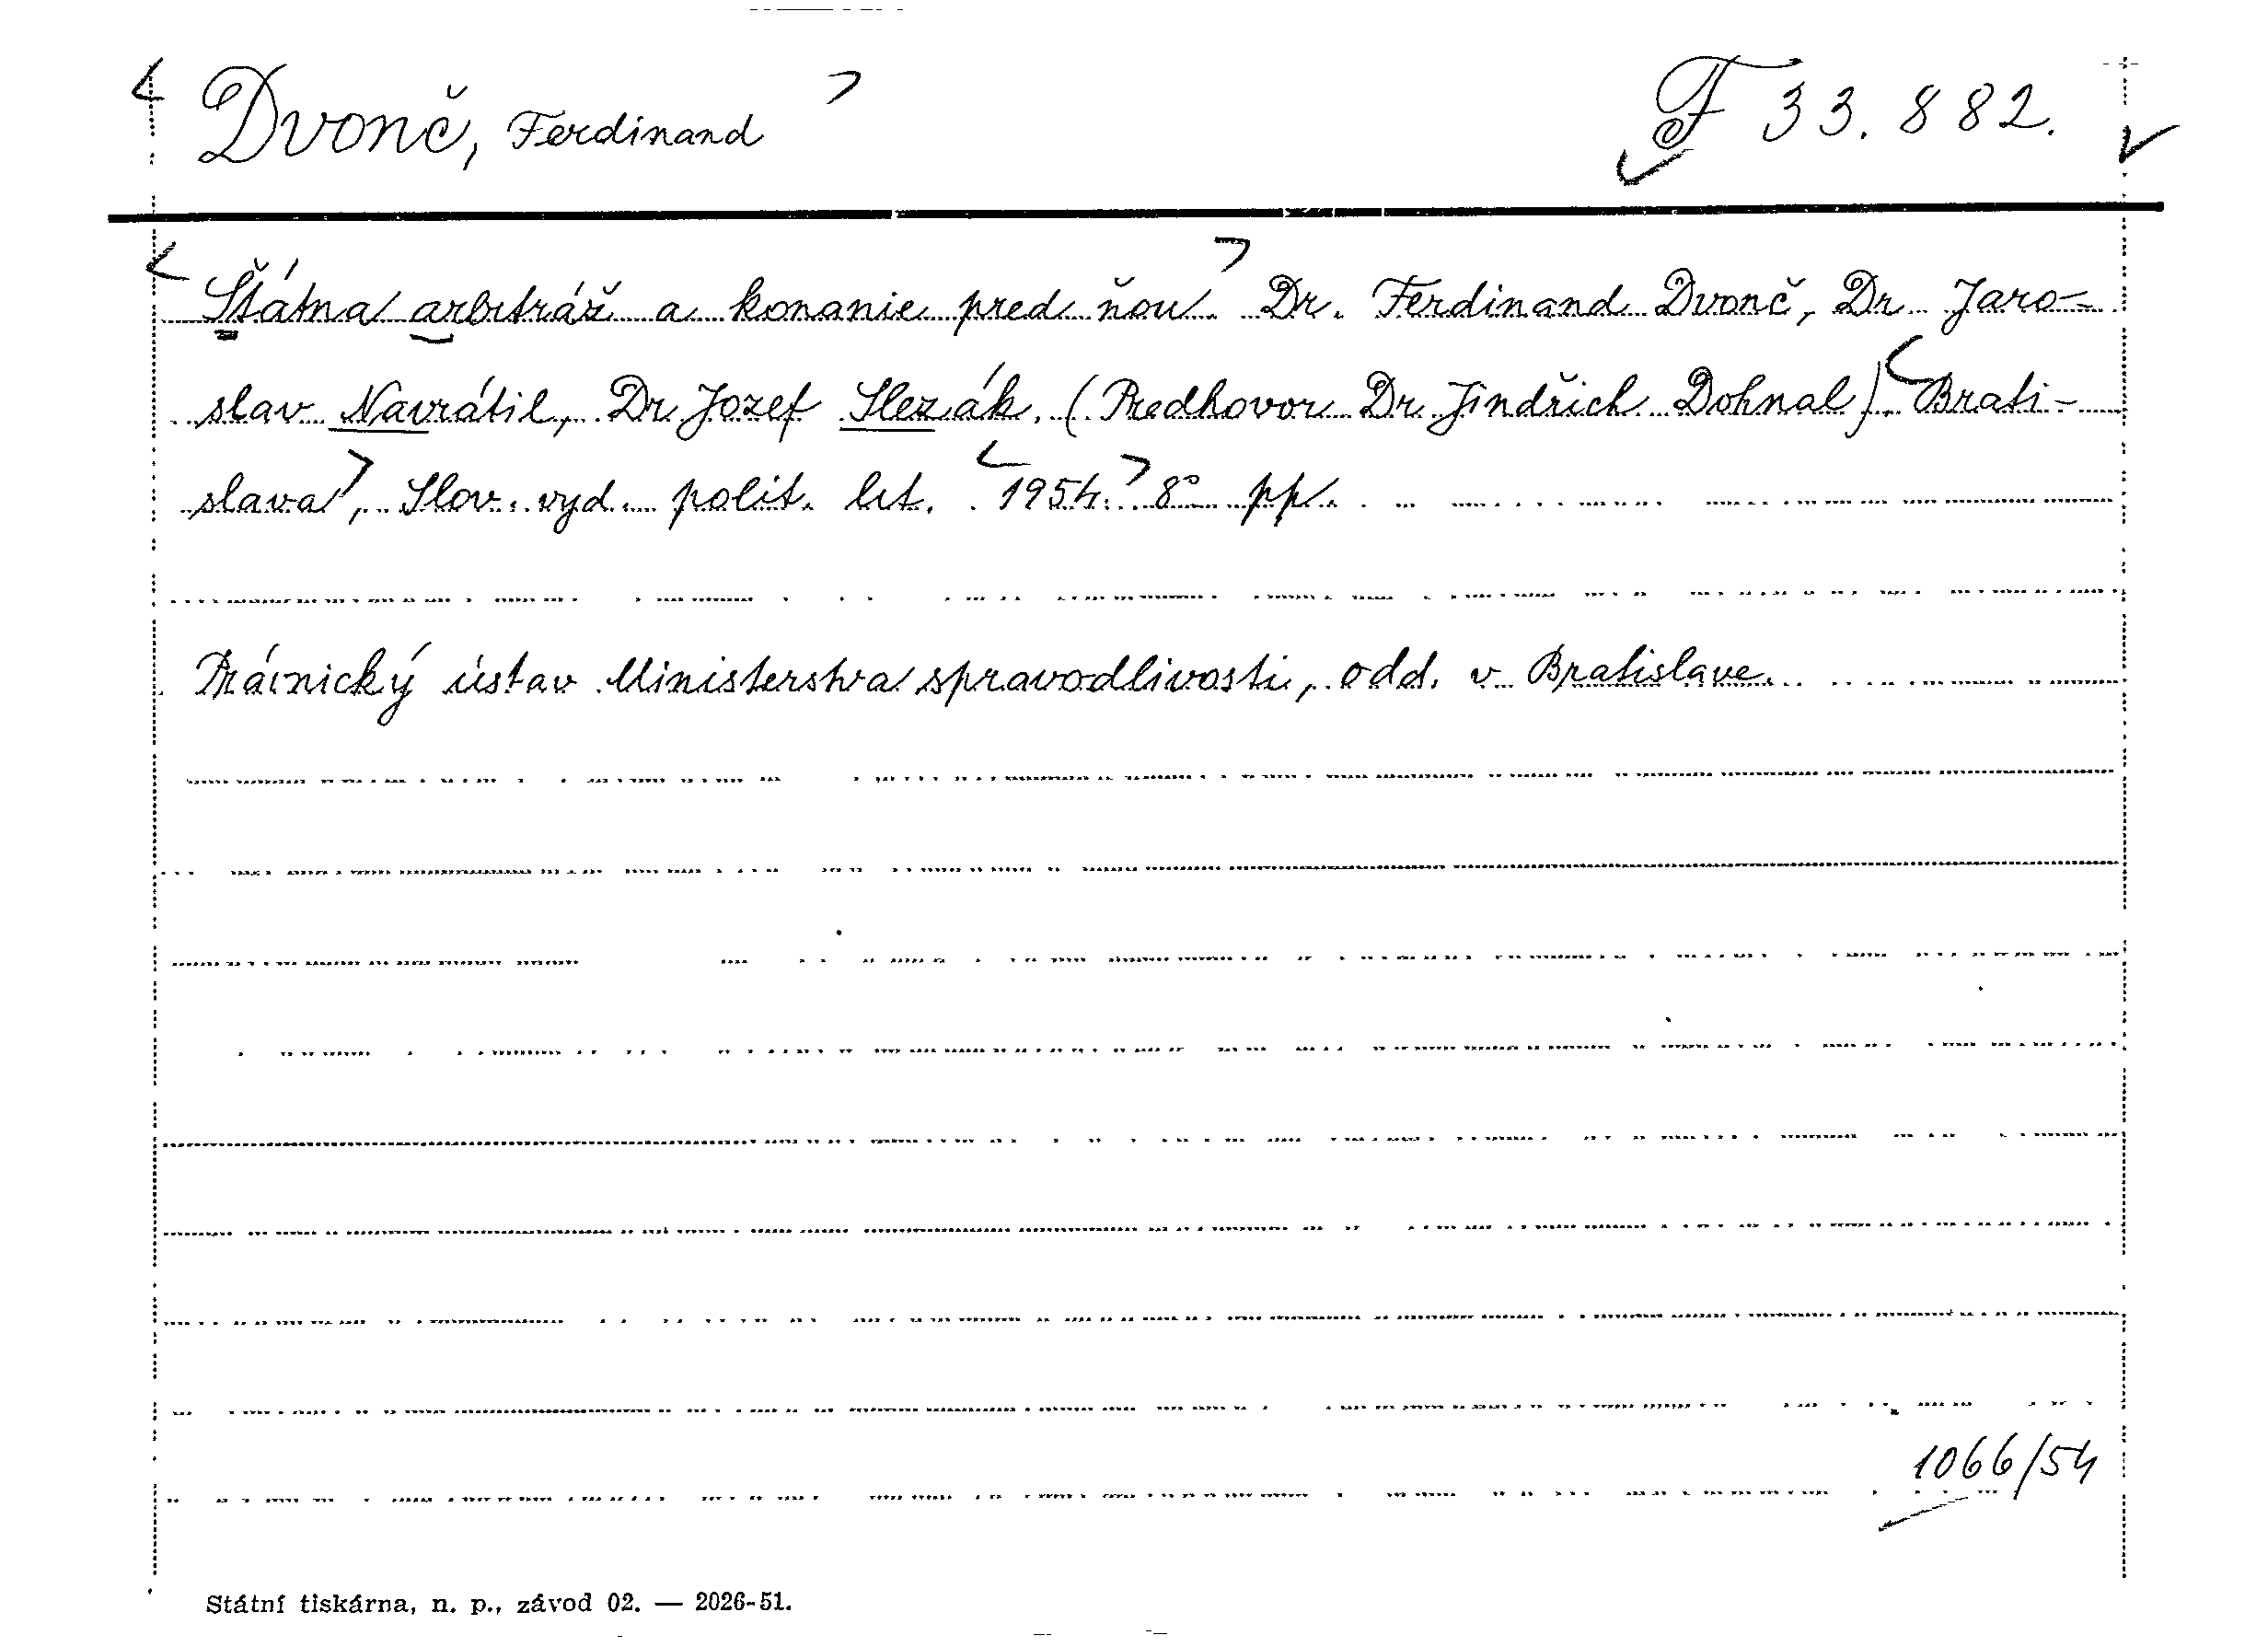 Dvonč, Ferdinand
F 33.882.
Štátna arbitráž a konanie pred ňou. Dr. Ferdinand Dvonč, Dr. Jaro-
slav Navrátil, Dr. Jozef Slezák. (Predhovor Dr. Jindřich Dohnal). Brati-
slava, Slov. vyd. polit. lit. 1954. 8° pp.
Právnický ústav Ministerstva spravodlivosti, odd. v Bratislave.
1066/54
Státní tiskárna, n. p., závod 02. — 2026-51.